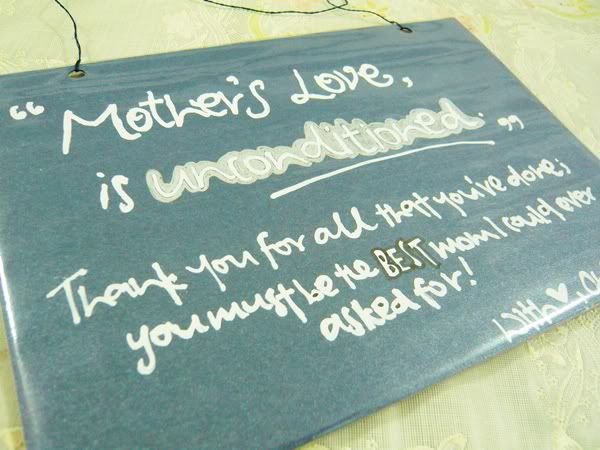 “ Mother's Love,
is unconditioned. ”
Thank you for all that you've done;
you must be the BEST mom I could ever
asked for!
With ♥